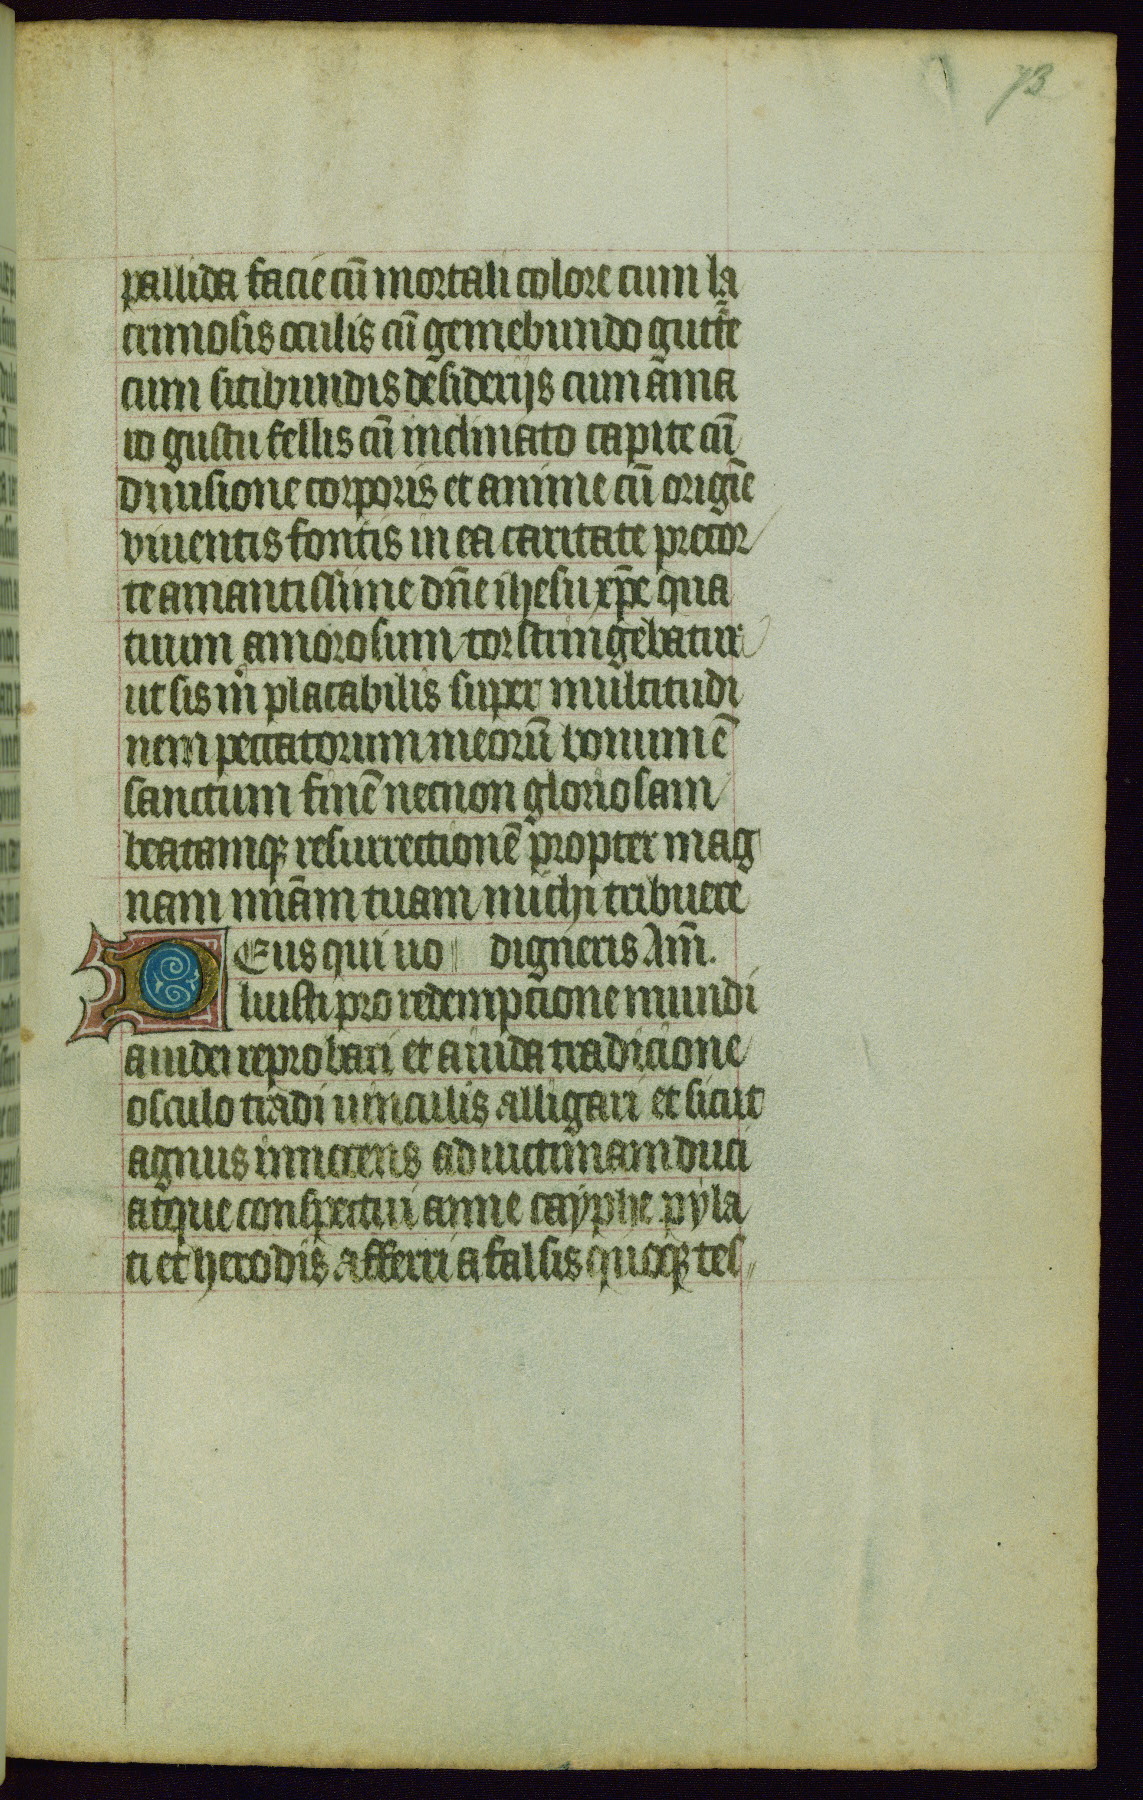 73
pallida facie cū mortali colore cum la
crimosis oculis cū gemebundo gutt̄e
cum sitibundis desiderijs cum ama
ro gustu fellis cū inclinato capite cū
diuisione corporis et anime cū origīe
viuentis fontis in ea caritate precor
te amantissime dn̄e ihesu xp̄e qua
tuum amorosum cor stringebatur
ut sis m̄ placabilis super multitudi
nem peccatorum meorū bonum ē
sanctum finē necnon gloriosam
beatamqꝫ resurrectionē propter mag
nam mīam tuam michi tribuere
Deus qui uo digneris Am̄.
luisti pro redemptione mundi
a iudeis reprobari et a iuda traditione
osculo tradi uinculis alligari et sicut
agnus innocens ad uictimam duci
atque conspectui anne cayphe pyla
ti et herodis afferri a falsis quoqꝫ tes